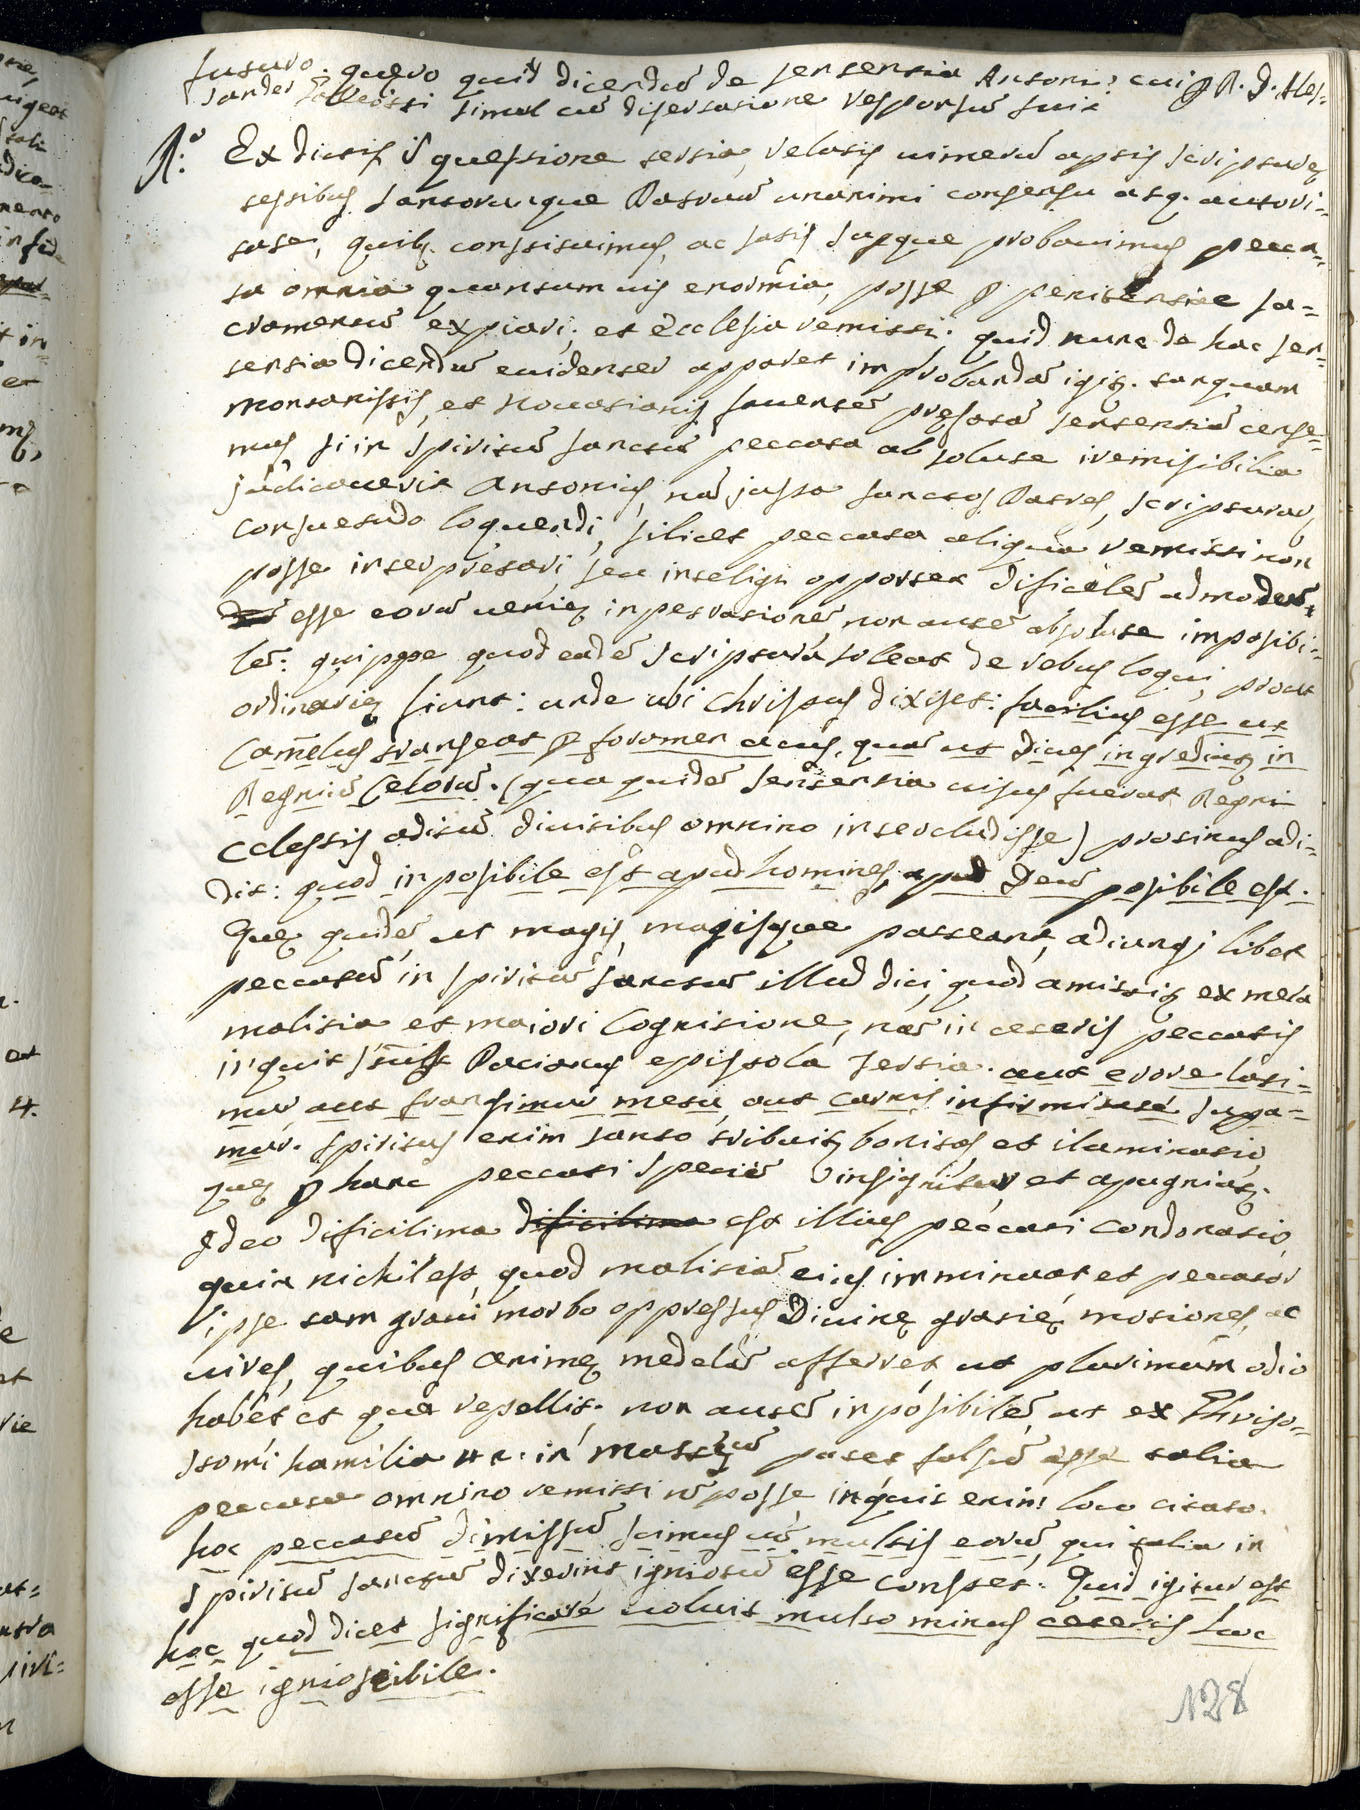 futuro. quero quid dicendũ de sentensia Antoni? cui P. R. D. Ales=
sander Galleossi simul cũ disertatione respponsũ fuit
R.º Ex dictis ĩ questione tersia, relatis nimerũ aptis scripture
testibus santorumque Patrum unanimi consensu atq. autori=
tate, quib. constituimus, ac satis supque probauimus pecca=
ta omnia quantumuis enormia, posse p penitensiae sa=
cramentũ expiari; et Ecclesia remissi; quid nunc de hac sen=
tensia dicendũ euidenter apparet improbandã igit. tanquam
montanistis, et Nouatianis fauentẽ prefatã sentensiã cense=
mus si in Spiritũ Sanctũ peccata absolute iremisibilia
judicauerit Antonius, nã justa sanctos Patres, scripturar,
consuetudo loquendi, silicet peccata aliqua remissi non
posse interpretari seu inteligi opportet dificilẽ admodũ
esse eorũ ueniẹ inpetrasionẽ, non autẽ absolute imposibi=
lẽ: quippe quod eadẽ scriptura soleat de rebus loqui, prout
ordinariẹ fiunt: unde ubi Christus dixiset: facilius esse ut
Camelus transeat p foramen acus, quã ut diues ingrediat in
Regniũ Celorũ. (qua quidẽ sentensia uisus fuerat Regni
Celestis aditũ diuitibus omnino interclud isse) protinus adi=
dit: quod inposibile est apud homines, apud Deũ posibile est.
Quẹ quidẽ ut magis, magisque pateant, adiungi libet
peccatũ in Spiritũ Sanctũ illud dici, quod amittit ex mera
malisia et maiori Cognisione, nã in ceteris peccatis
inquit Pacianus epistola Tersia. aut erore labi=
mur aut frangimur metu, aut Carnis infirmitate supa=
mur. Spiritus enim santo tribuit bonitas et iluminatio
quẹ p hanc peccati speciẽ insignitur et apugniat.
Ideo dificilima dificilima est illius peccati Condonatio,
quia nichil est, quod malisiã eius imminuat et peccator
ipse tam graui morbo oppressus Diuinẹ gratiẹ, motiones, ac
uires, quibus animẹ medelã afferret, ut plurimum odio
habet et quã repellit. non autẽ inposibilẽ, ut ex Chriso=
stomi hamilia 42. in Mattẹũ patet falsũ esse talia
peccata omnino remissi nõ posse, inquit enim loco citato.
hoc peccatũ dimissũ scimus cũ multis eorũ, qui talia in
Spiritũ Sanctũ dixerint igniotũ esse constet. Quid igitur est
hoc quod dicet significare uoluit multo minus ceteris hoc
esse ignioscibile.
N28